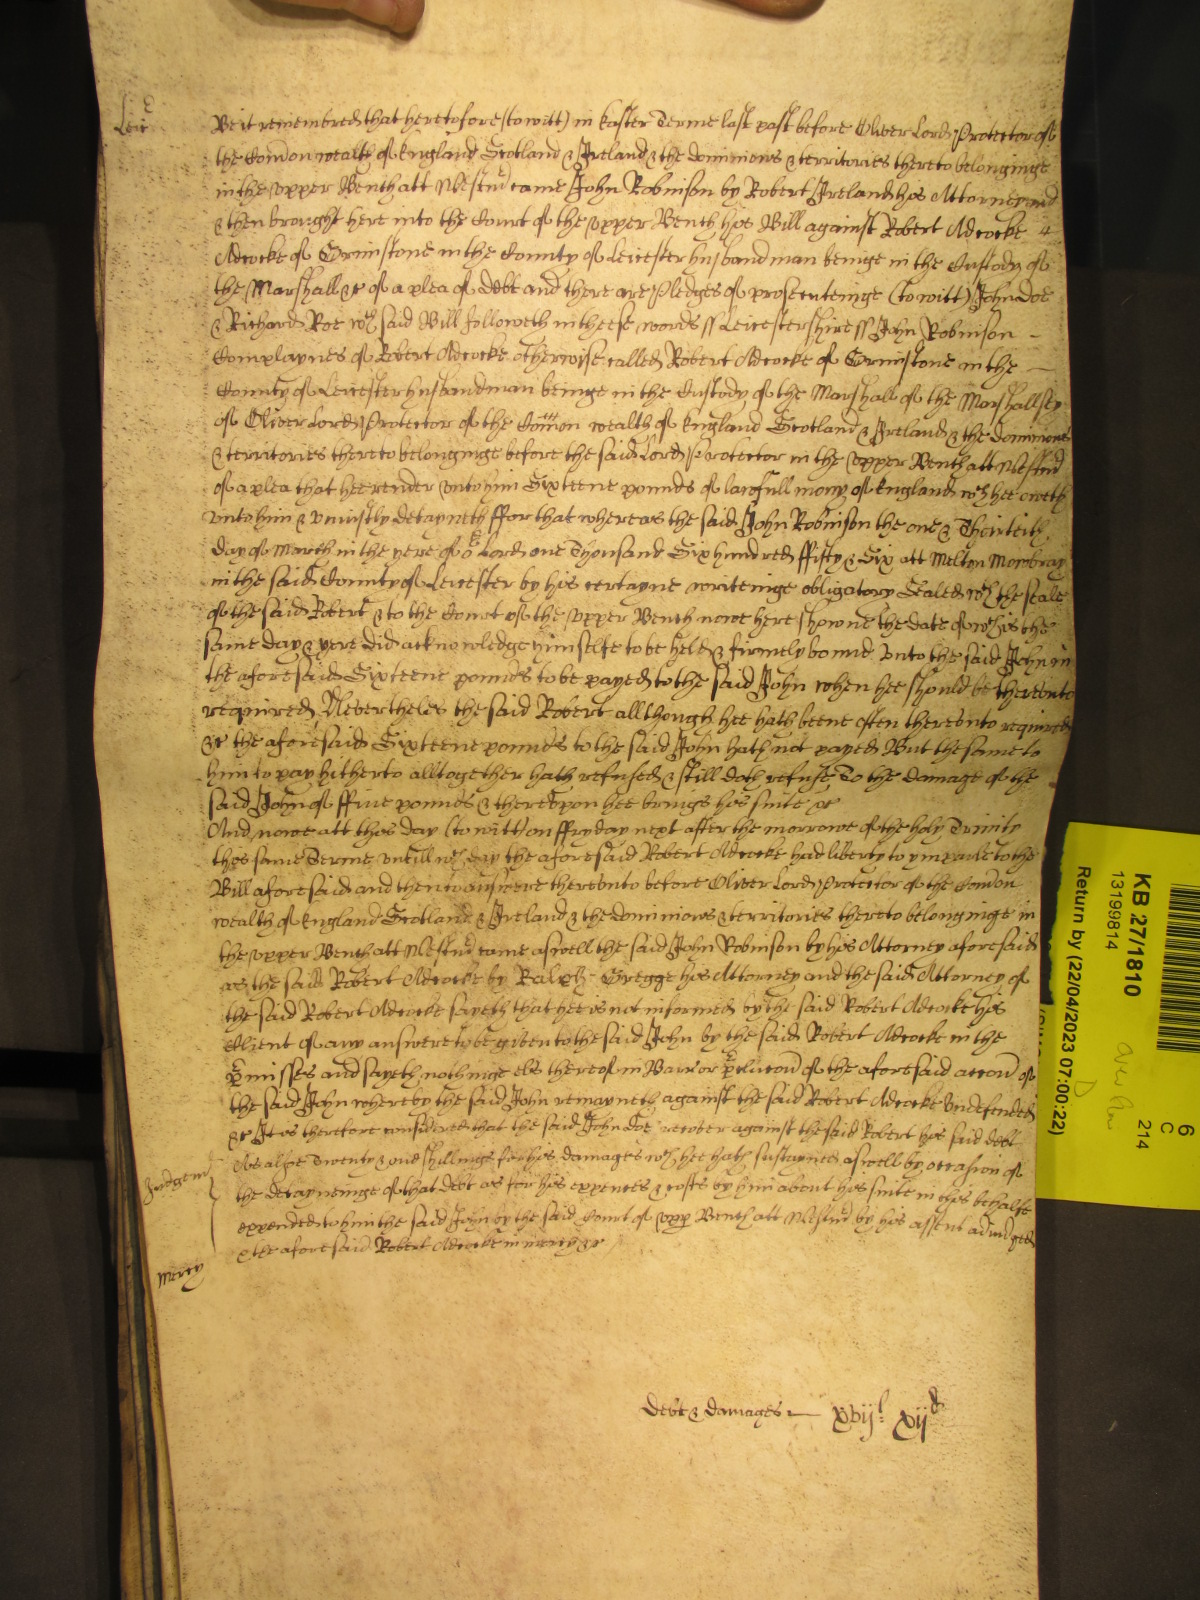 Leic
Be it remembred that heretofore (to witt) in Easter Terme last past before Oliver Lord Protector of
the Comon wealth of England Scotland & Ireland & the dominions & territories thereto belonginge
in the vpper Bench att Westmr came John Robinson by Robert Ireland his Attorney and
& then brought here into the Court of the vpper Bench his Bill against Robert Adcocke
Adcocke of Ormstone in the County of Leicester husbandman beinge in the Custody of
the Marshall &c of a plea of debt and there are Pledges of prosecuteinge (to witt) John Doe
& Richard Roe wch said Bill followeth in theese words ss Leicestershire ss John Robinson
Complaynes of Robert Adcocke otherwise called Robert Adcocke of Ormstone in the
County of Leicester husbandman beinge in the Custody of the Marshall of the Marshallsey
of Oliver Lord Protector of the Comon wealth of England Scotland & Ireland & the dominions
& territories thereto belonginge before the said Lord Protector in the vpper Bench att Westmr
of a plea that hee render vnto him Sixteene pounds of lawfull mony of England wch hee oweth
vnto him & vniustly detayneth ffor that whereas the said John Robinson the one & Thirtieth
day of March in the yere of or Lord one Thousand Six hundred ffifty & Six att Melton Mowbray
in the said County of Leicester by his certayne writeinge obligatory Sealed wth the seale
of the said Robert & to the Court of the vpper Bench nowe here showne the date of wch is the
same day & yere did acknowledge himselfe to be held & firmely bound vnto the said John in
the aforesaid Sixteene pounds to be payed to the said John when hee should be therevnto
required Neverthelesse the said Robert allthough hee hath beene often therevnto required
&c the aforesaid Sixteene pounds to the said John hath not payed But the same to
him to pay hitherto alltogether hath refused & still doth refuse To the damage of the
said John of ffiue pounds & therevpon hee brings his suite &c
And nowe att this day (to witt) on ffryday next after the morrowe of the holy Trinity
this same Terme vntill wch day the aforesaid Robert Adcocke had liberty to ymparle to the
Bill aforesaid and then to answere therevnto before Oliver Lord Protector of the Comon
wealth of England Scotland & Ireland & the dominions & territories thereto belonginge in
the vpper Bench att Westmr came aswell the said John Robinson by his Attorney aforesaid
as the said Robert Adcocke by Ralph Gregge his Attorney and the said Attorney of
the said Robert Adcocke sayeth that hee is not informed by the said Robert Adcocke his
Client of any answere to be given to the said John by the said Robert Adcocke in the
pmisses and sayeth nothinge els thereof in Barr or pclucon of the aforesaid accon of
the said John whereby the said John remayneth against the said Robert Adcocke vndefended
&c It is therefore considered that the said John Doe recover against the said Robert his said debt
As alsoe Twenty & one shillings for his damages wch hee hath sustayned aswell by occasion of
the detayneinge of that debt as for his expences & costs by him about his suite in this behalfe
expended to him the said John by the said Court of vpp Bench att Westmr by his assent adiudged
& the aforesaid Robert Adcocke in mercy &c
Judgemt
Mercy
Debt & damages — xvijl xijd
KB 27/1810
13199814
Return by (22/04/2023 07:00:22)
6
C
214